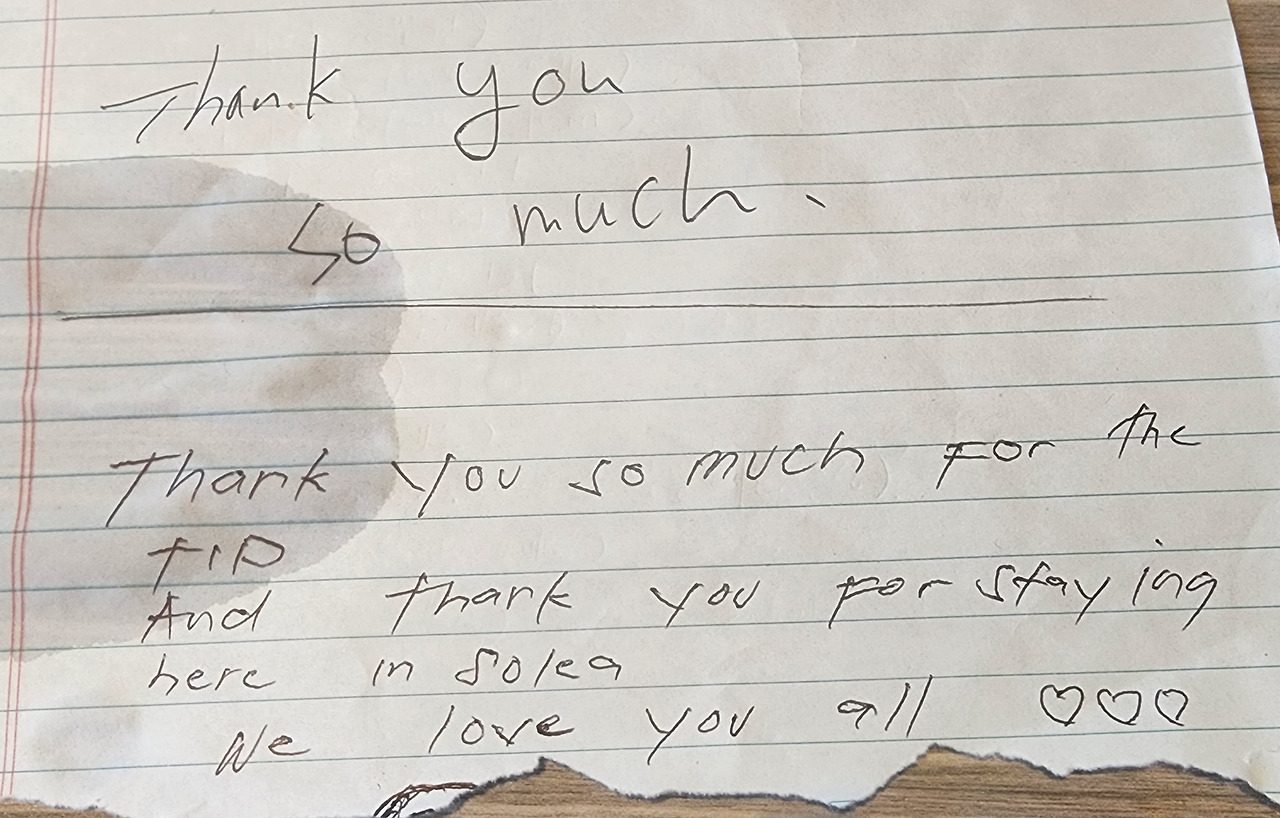 Thank you
so much.
Thank you so much for the
tip
And thank you for staying
here in Solea
We love you all ♡♡♡